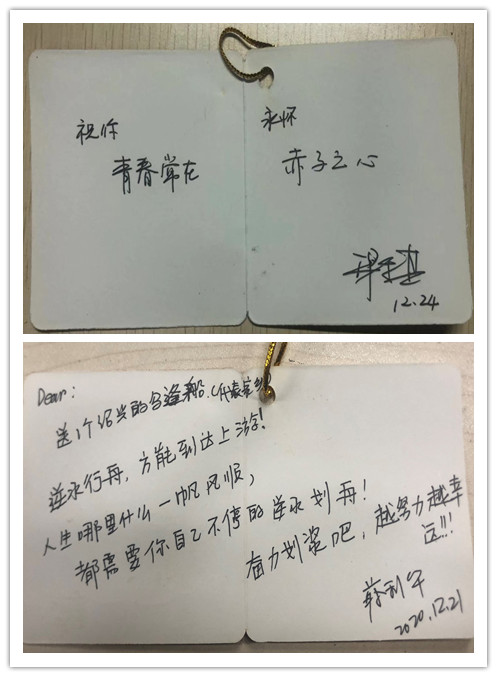 祝你
青春常在
永怀
赤子之心
12.24
Dear:
送1个绍兴的乌篷船.(代表家乡)
逆水行舟,方能到达上游!
人生哪里什么一帆风顺,
都需要你自己不停的逆水划舟!
奋力划桨吧,越努力越幸
运!!!
2020.12.21